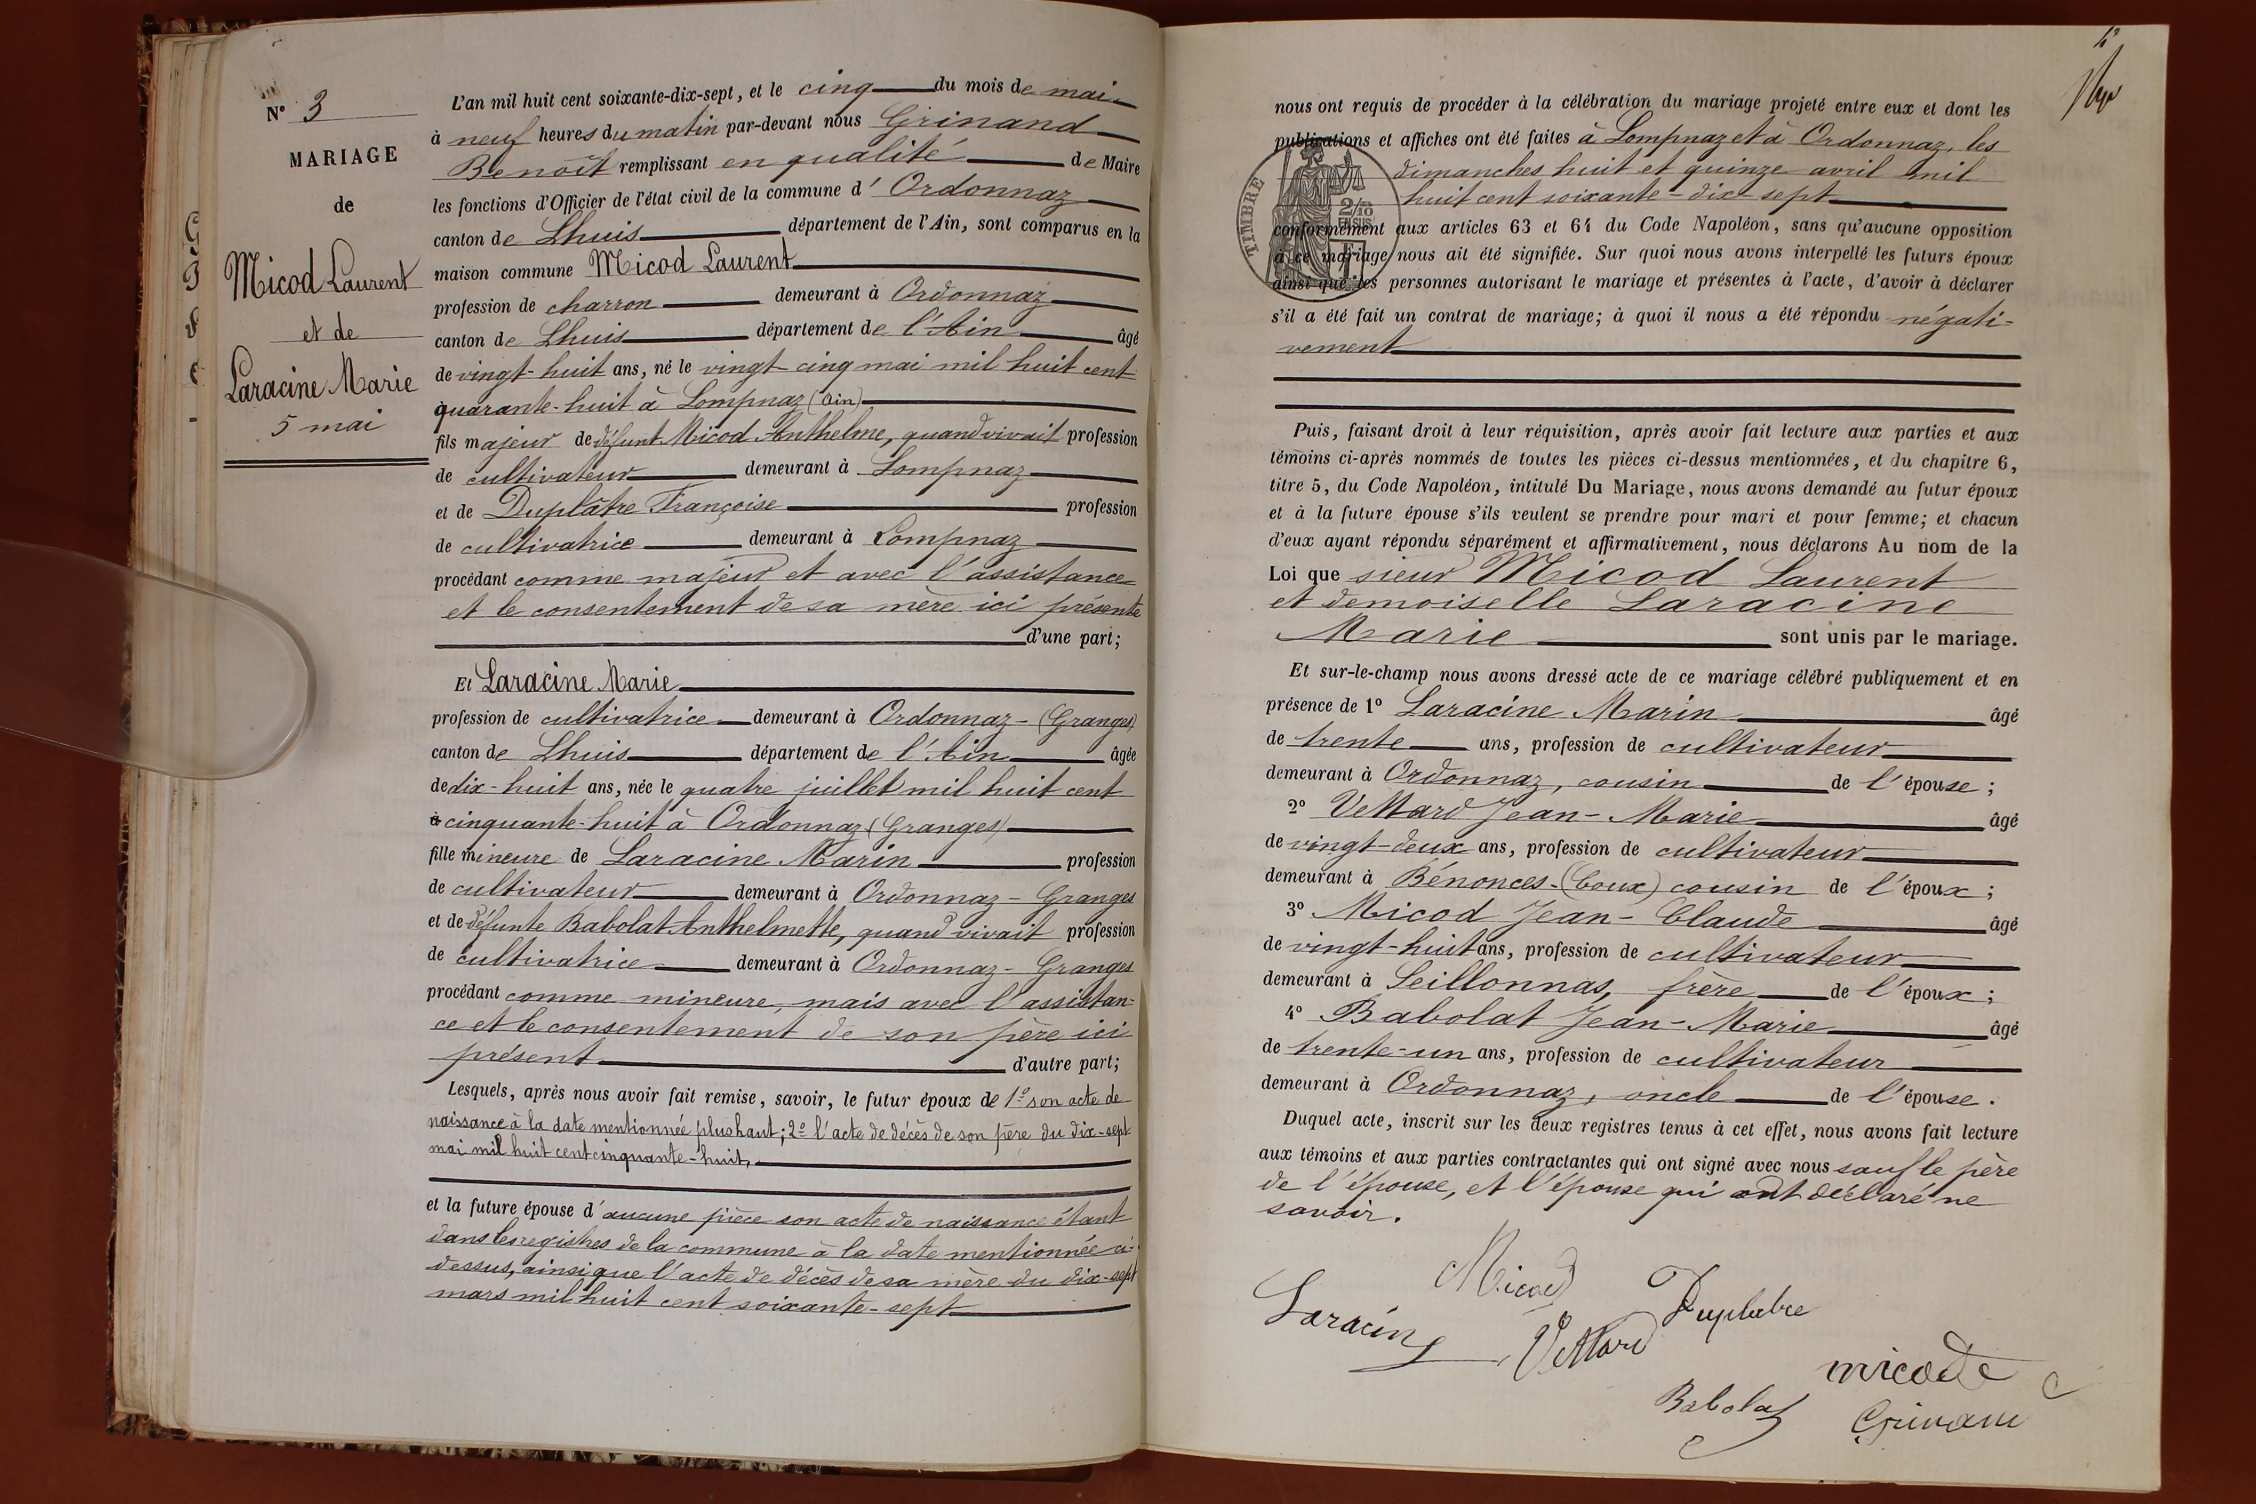 N° 3
MARIAGE
de
Micod Laurent
et de
Laracine Marie
5 mai
L'an mil huit cent soixante-dix-sept, et le cinq du mois de mai
à neuf heures du matin par-devant nous Grinand
Benoît remplissant en qualité de Maire
les fonctions d'Officier de l'état civil de la commune d'Ordonnaz
canton de Lhuis département de l'Ain, sont comparus en la
maison commune Micod Laurent
profession de charron demeurant à Ordonnaz
canton de Lhuis département de l'Ain âgé
de vingt-huit ans, né le vingt-cinq mai mil huit cent
quarante-huit à Lompnaz (Ain)
fils majeur de défunt Micod Anthelme, quand vivait profession
de cultivateur demeurant à Lompnaz
et de Duplâtre Françoise profession
de cultivatrice demeurant à Lompnaz
procédant comme majeur et avec l'assistance
et le consentement de sa mère ici présente
d'une part;
Et Laracine Marie
profession de cultivatrice demeurant à Ordonnaz - (Granges)
canton de Lhuis département de l'Ain âgée
de dix-huit ans, née le quatre juillet mil huit cent
à cinquante-huit à Ordonnaz (Granges)
fille mineure de Laracine Marin profession
de cultivateur demeurant à Ordonnaz - Granges
et de défunte Babolat Anthelmette, quand vivait profession
de cultivatrice demeurant à Ordonnaz - Granges
procédant comme mineure, mais avec l'assistan-
ce et le consentement de son père ici
présent d'autre part;
Lesquels, après nous avoir fait remise, savoir, le futur époux de 1° son acte de
naissance à la date mentionnée plus haut; 2° l'acte de décès de son père du dix-sept
mai mil huit cent cinquante-huit,
et la future épouse d'aucune pièce son acte de naissance étant
dans les registres de la commune à la date mentionnée ci-
dessus, ainsi que l'acte de décès de sa mère du dix-sept
mars mil huit cent soixante-sept
nous ont requis de procéder à la célébration du mariage projeté entre eux et dont les
publications et affiches ont été faites à Lompnaz et à Ordonnaz, les
dimanches huit et quinze avril mil
huit cent soixante-dix-sept
TIMBRE
2/10
EN SUS
conformément aux articles 63 et 64 du Code Napoléon, sans qu'aucune opposition
à ce mariage nous ait été signifiée. Sur quoi nous avons interpellé les futurs époux
ainsi que les personnes autorisant le mariage et présentes à l'acte, d'avoir à déclarer
s'il a été fait un contrat de mariage; à quoi il nous a été répondu négati-
vement
Puis, faisant droit à leur réquisition, après avoir fait lecture aux parties et aux
témoins ci-après nommés de toutes les pièces ci-dessus mentionnées, et du chapitre 6,
titre 5, du Code Napoléon, intitulé Du Mariage, nous avons demandé au futur époux
et à la future épouse s'ils veulent se prendre pour mari et pour femme; et chacun
d'eux ayant répondu séparément et affirmativement, nous déclarons Au nom de la
Loi que sieur Micod Laurent
et demoiselle Laracine
Marie sont unis par le mariage.
Et sur-le-champ nous avons dressé acte de ce mariage célébré publiquement et en
présence de 1° Laracine Marin âgé
de trente ans, profession de cultivateur
demeurant à Ordonnaz, cousin de l'épouse;
2° Vettard Jean-Marie âgé
de vingt-deux ans, profession de cultivateur
demeurant à Bénonces-(Coux) cousin de l'époux;
3° Micod Jean-Claude âgé
de vingt-huit ans, profession de cultivateur
demeurant à Seillonnas, frère de l'époux;
4° Babolat Jean-Marie âgé
de trente-un ans, profession de cultivateur
demeurant à Ordonnaz, oncle de l'épouse.
Duquel acte, inscrit sur les deux registres tenus à cet effet, nous avons fait lecture
aux témoins et aux parties contractantes qui ont signé avec nous sauf le père
de l'épouse, et l'épouse qui ont déclaré ne
savoir.
Micod
Laracin
Duplatre
Vettard
micod
Babolat
Grinand